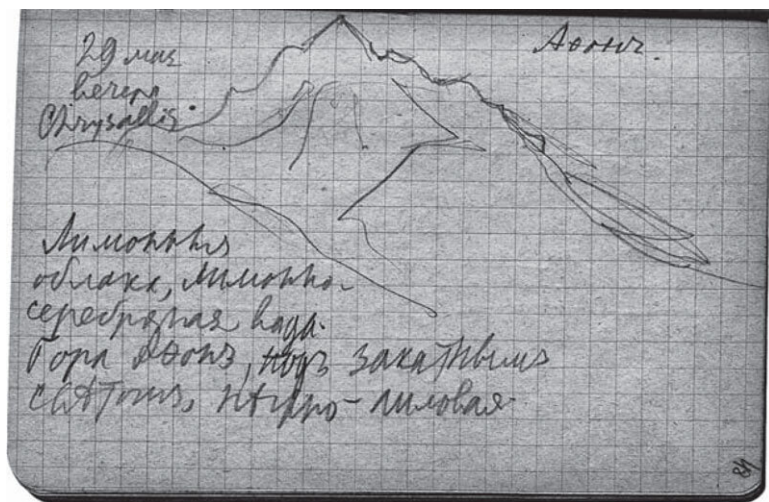 29 мая
Аѳонъ.
Chrysallis.
Лимонныя
облака, лимонно-
серебряная вода.
Гора Аѳонъ, подъ закатнымъ
свѣтомъ, нѣжно-лиловая